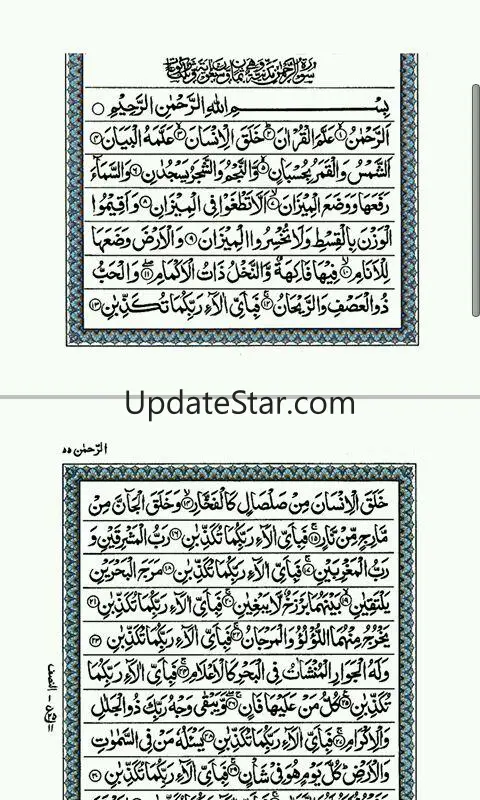 بِسْمِ اللهِ الرَّحْمٰنِ الرَّحِيْمِ
اَلرَّحْمٰنُ ۙ۱ عَلَّمَ الْقُرْاٰنَ ؕ۲ خَلَقَ الْاِنْسَانَ ۙ۳ عَلَّمَهُ الْبَيَانَ ۴
اَلشَّمْسُ وَالْقَمَرُ بِحُسْبَانٍ ۪۵ وَّالنَّجْمُ وَالشَّجَرُ يَسْجُدٰنِ ۶ وَالسَّمَآءَ
رَفَعَهَا وَوَضَعَ الْمِيْزَانَ ۙ۷ اَلَّا تَطْغَوْا فِى الْمِيْزَانِ ۸ وَاَقِيْمُوا
الْوَزْنَ بِالْقِسْطِ وَلَا تُخْسِرُوا الْمِيْزَانَ ۹ وَالْاَرْضَ وَضَعَهَا
لِلْاَنَامِ ۙ۱۰ فِيْهَا فَاكِهَةٌ وَّالنَّخْلُ ذَاتُ الْاَكْمَامِ ۖ۱۱ وَالْحَبُّ
ذُو الْعَصْفِ وَالرَّيْحَانُ ۚ۱۲ فَبِاَىِّ اٰلَآءِ رَبِّكُمَا تُكَذِّبٰنِ ۱۳
UpdateStar.com
الرّحمٰن ۵۵
خَلَقَ الْاِنْسَانَ مِنْ صَلْصَالٍ كَالْفَخَّارِ ۙ۱۴ وَخَلَقَ الْجَآنَّ مِنْ
مَّارِجٍ مِّنْ نَّارٍ ۚ۱۵ فَبِاَىِّ اٰلَآءِ رَبِّكُمَا تُكَذِّبٰنِ ۱۶ رَبُّ الْمَشْرِقَيْنِ وَ
رَبُّ الْمَغْرِبَيْنِ ۚ۱۷ فَبِاَىِّ اٰلَآءِ رَبِّكُمَا تُكَذِّبٰنِ ۱۸ مَرَجَ الْبَحْرَيْنِ
يَلْتَقِيٰنِ ۙ۱۹ بَيْنَهُمَا بَرْزَخٌ لَّا يَبْغِيٰنِ ۚ۲۰ فَبِاَىِّ اٰلَآءِ رَبِّكُمَا تُكَذِّبٰنِ ۲۱
يَخْرُجُ مِنْهُمَا اللُّؤْلُؤُ وَالْمَرْجَانُ ۚ۲۲ فَبِاَىِّ اٰلَآءِ رَبِّكُمَا تُكَذِّبٰنِ ۲۳
وَلَهُ الْجَوَارِ الْمُنْشَئٰتُ فِى الْبَحْرِ كَالْاَعْلَامِ ۚ۲۴ فَبِاَىِّ اٰلَآءِ رَبِّكُمَا
تُكَذِّبٰنِ ۲۵ كُلُّ مَنْ عَلَيْهَا فَانٍ ۚ۲۶ وَّيَبْقٰى وَجْهُ رَبِّكَ ذُو الْجَلٰلِ
وَالْاِكْرَامِ ۚ۲۷ فَبِاَىِّ اٰلَآءِ رَبِّكُمَا تُكَذِّبٰنِ ۲۸ يَسْئَلُهٗ مَنْ فِى السَّمٰوٰتِ
وَالْاَرْضِ ؕ كُلَّ يَوْمٍ هُوَ فِىْ شَاْنٍ ۚ۲۹ فَبِاَىِّ اٰلَآءِ رَبِّكُمَا تُكَذِّبٰنِ ۳۰